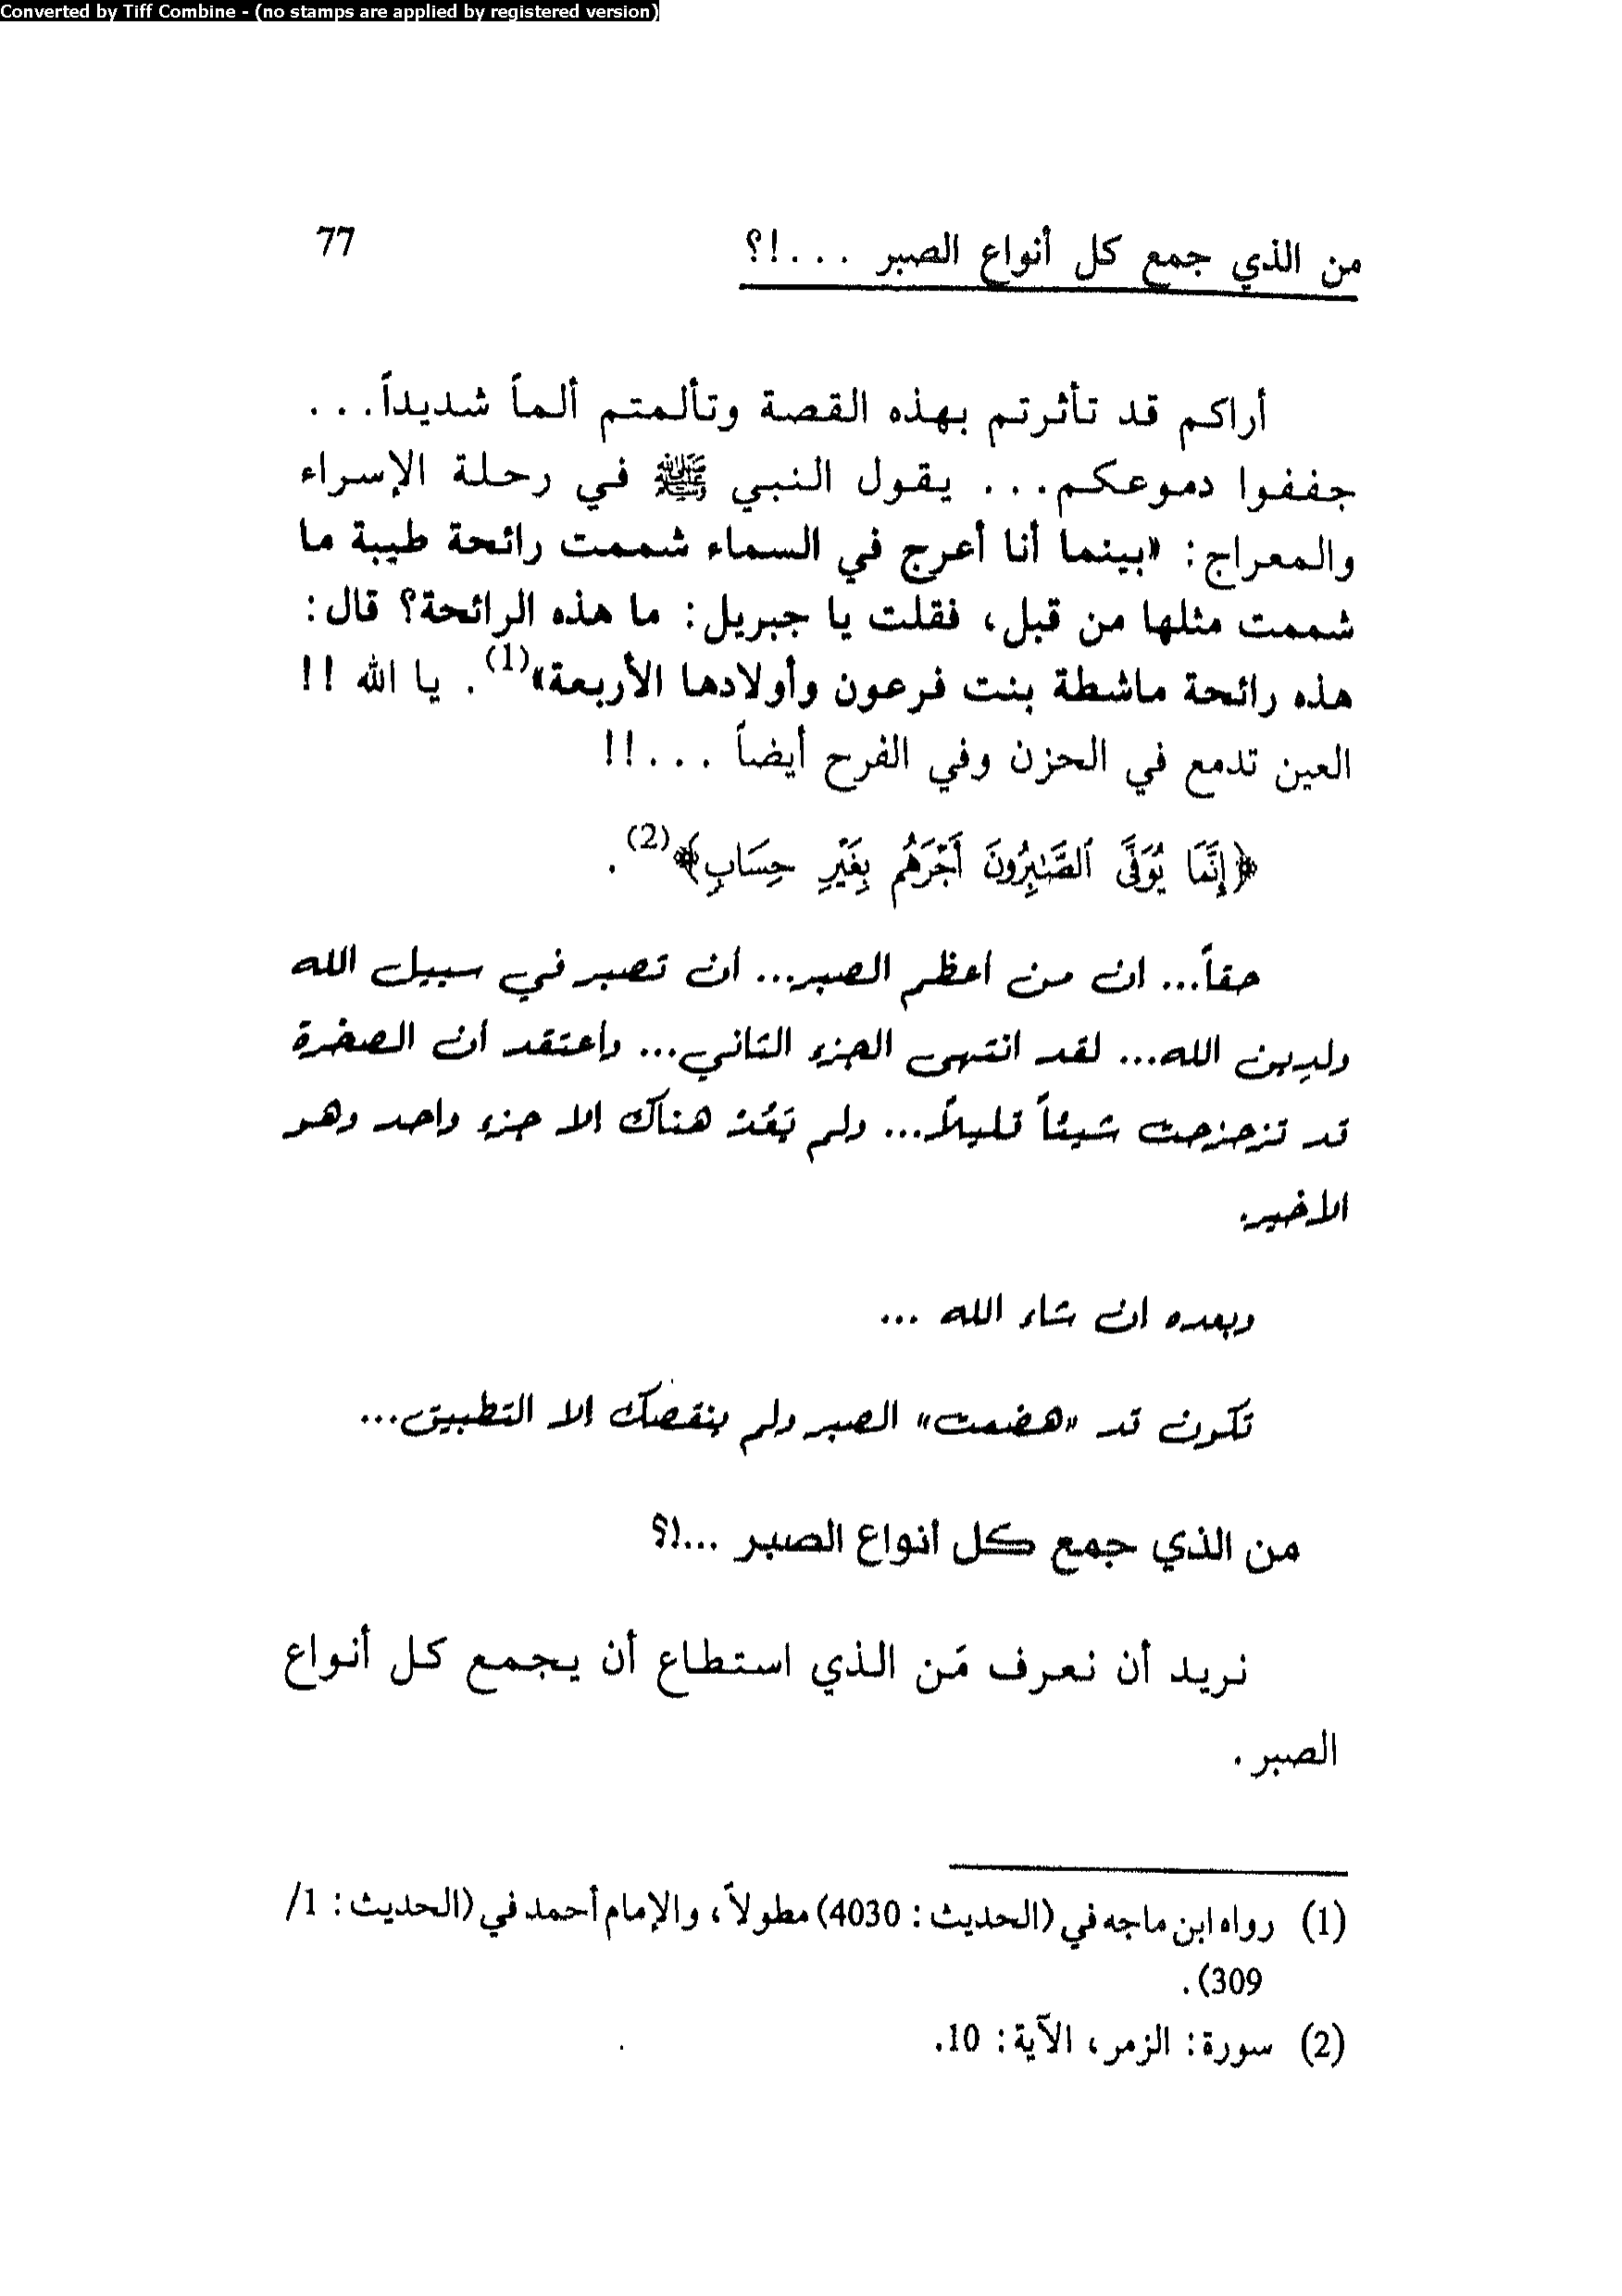 Converted by Tiff Combine - (no stamps are applied by registered version)
من الذي جمع كل أنواع الصبر ...!؟ 77
أراكم قد تأثرتم بهذه القصة وتألمتم ألماً شديداً...
جففوا دموعكم... يقول النبي ﷺ في رحلة الإسراء
والمعراج: «بينما أنا أعرج في السماء شممت رائحة طيبة ما
شممت مثلها من قبل، فقلت يا جبريل: ما هذه الرائحة؟ قال:
هذه رائحة ماشطة بنت فرعون وأولادها الأربعة»(1). يا الله !!
العين تدمع في الحزن وفي الفرح أيضاً ...!!
﴿إِنَّمَا يُوَفَّى ٱلصَّٰبِرُونَ أَجْرَهُم بِغَيْرِ حِسَابٍ﴾(2).
حقاً... ان من اعظم الصبر... أن تصبر في سبيل الله
ولدين الله... لقد انتهى الجزء الثاني... واعتقد أن الصخرة
قد تزحزحت شيئاً قليلاً... ولم يَعُد هناك الا جزء واحد وهو
الاخير.
وبعده ان شاء الله ...
تكون قد «هضمت» الصبر ولم ينقصك الا التطبيق...
من الذي جمع كل أنواع الصبر ...!؟
نريد أن نعرف مَن الذي استطاع أن يجمع كل أنواع
الصبر.
(1) رواه ابن ماجه في (الحديث: 4030) مطولاً، والإمام أحمد في (الحديث: 1/
309).
(2) سورة: الزمر، الآية: 10.